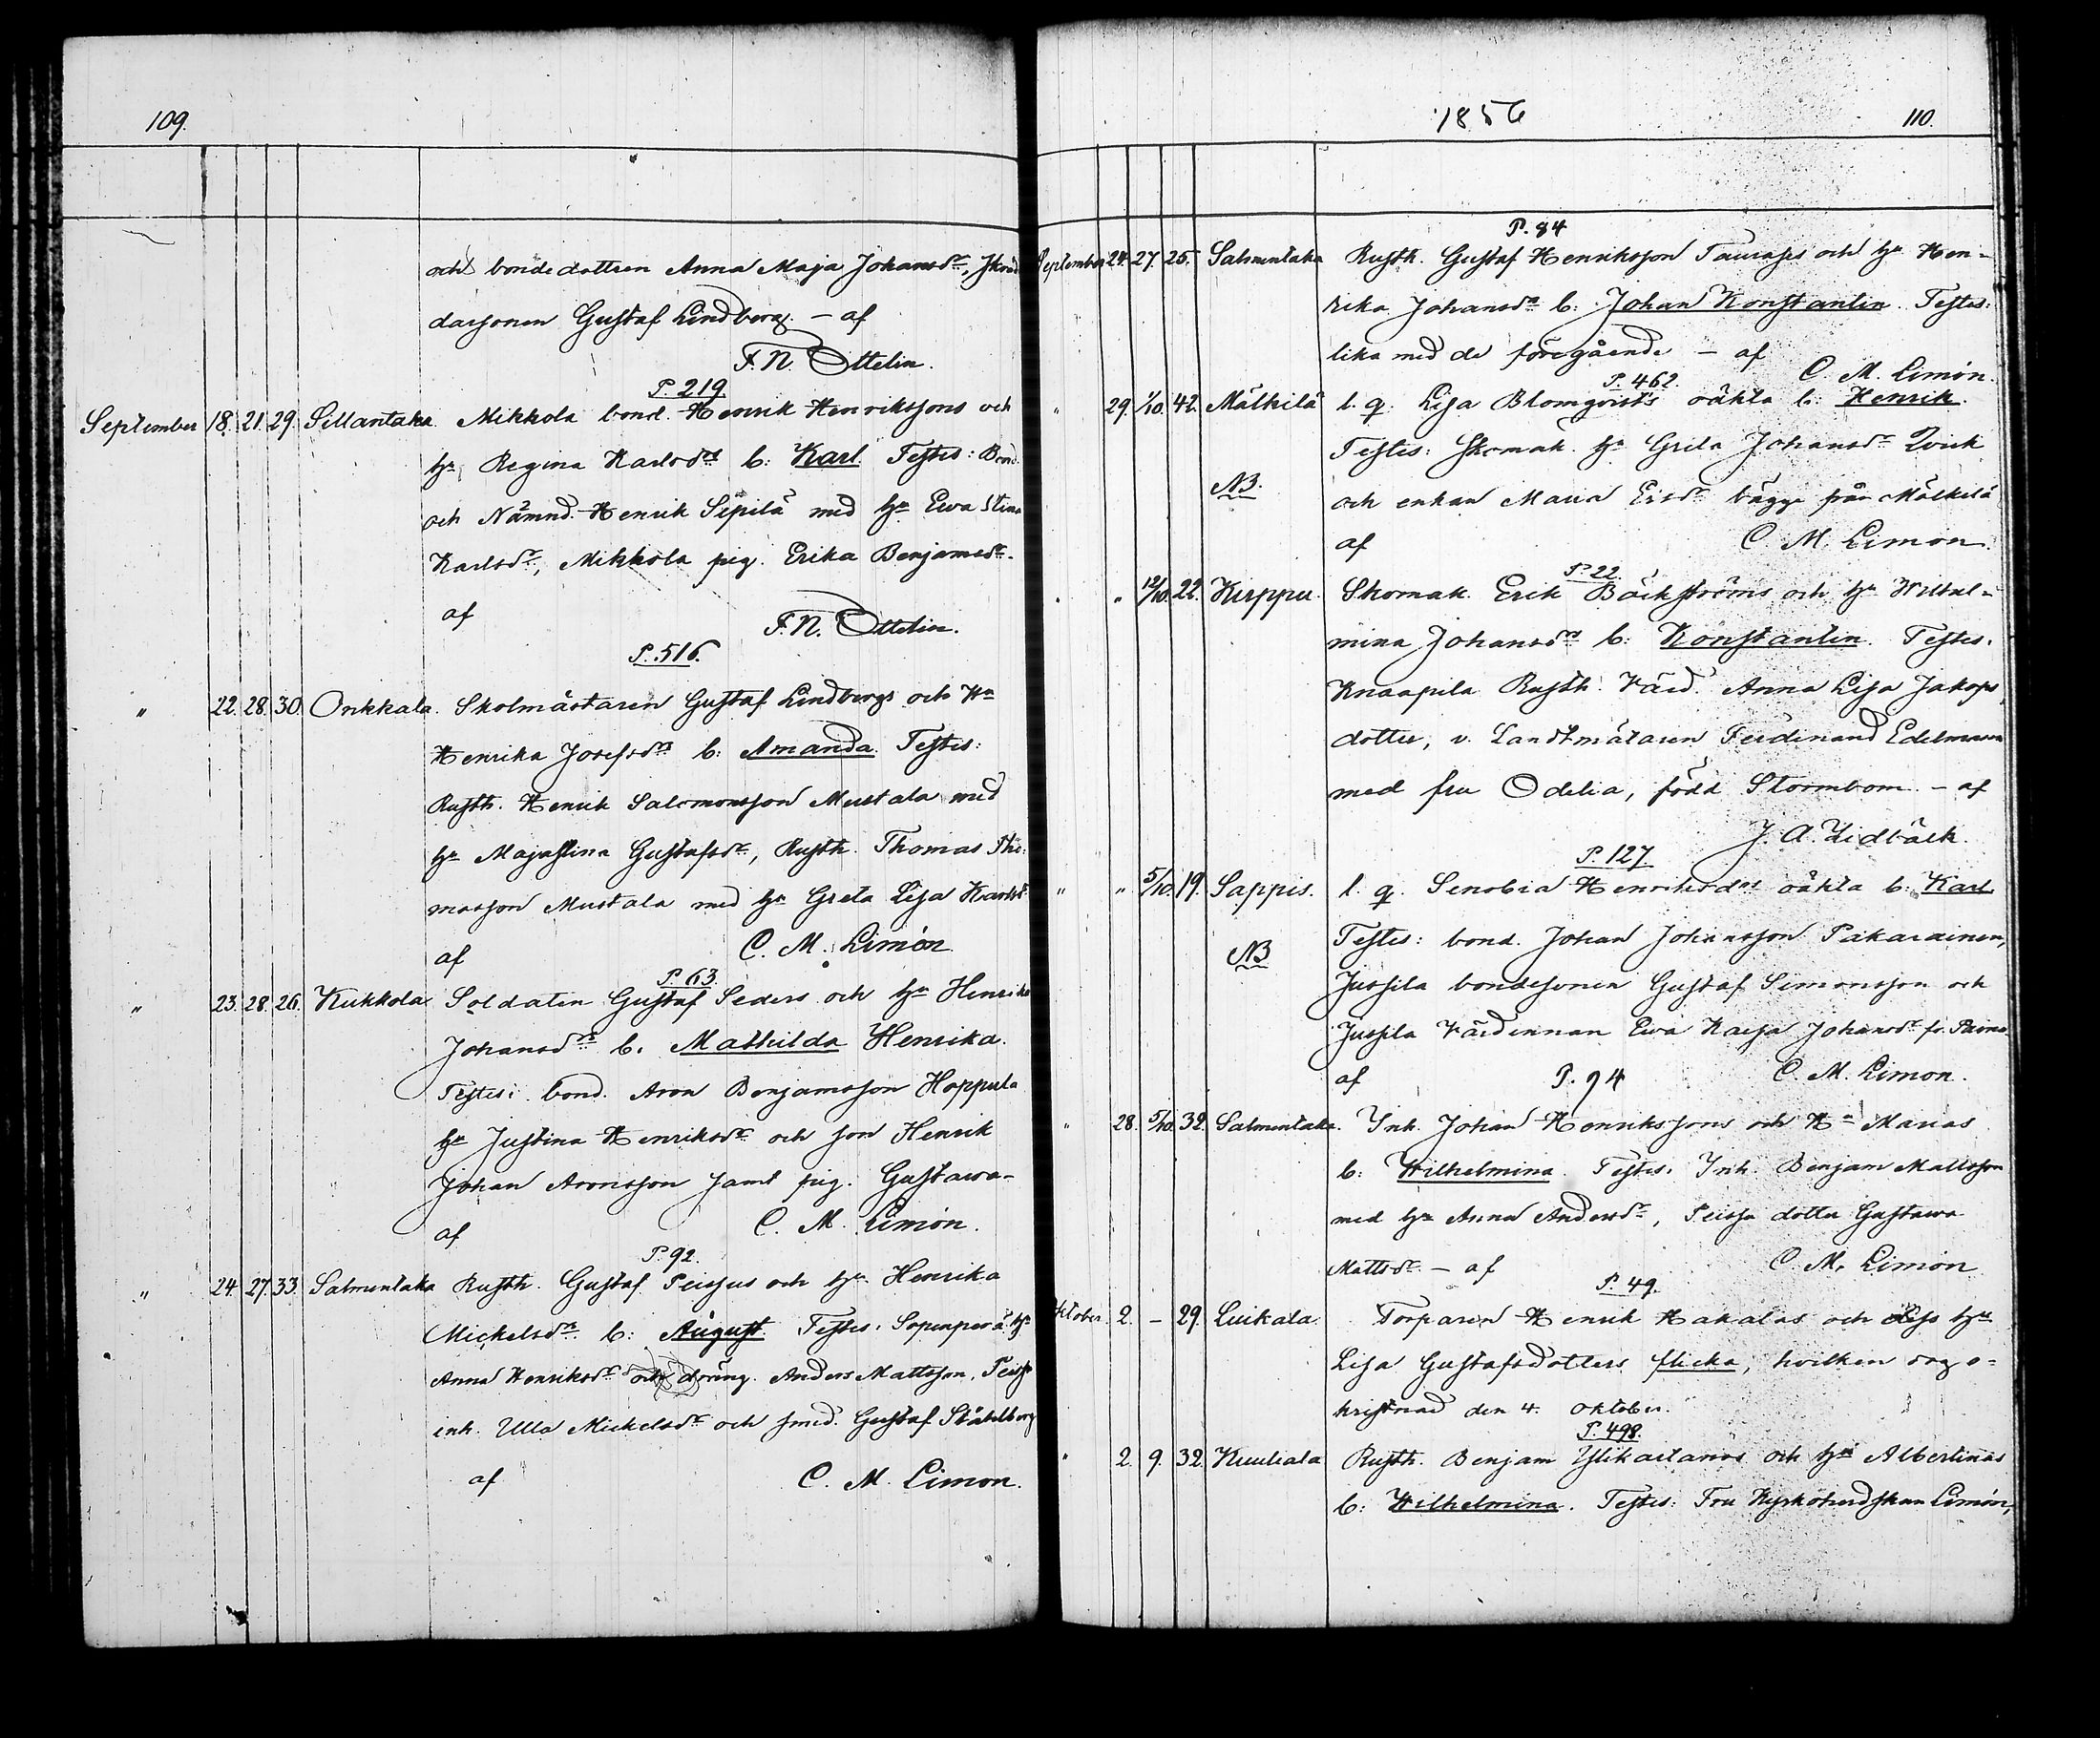 109.
och bondedottren Anna Maja Johansdr, Skräd
darsonen Gustaf Lindberg. – af
F. N. Ottelin.
P. 219.
September 18. 21. 29. Sillantaka. Mikkola bond. Henrik Henrikssons och
hu Regina Karlsdrs b: Karl Testes: Bond.
och Nämnd. Henrik Sipilä med hu Ewa Stina
Karlsdr, Mikkola pig. Erika Benjamsdr.
af
F. N. Ottelin.
P. 516.
" 22. 28. 30. Onkkala. Skolmästaren Gustaf Lindbergs och Hu
Henrika Josefsdrs b: Amanda. Testes:
Rusth. Henrik Salomonsson Mustala med
hu Majastina Gustafsdr, Rusth. Thomas Tho-
masson Mustala med hu Greta Lisa Karlsdr
af C. M. Limón
P. 63.
" 23. 28. 26. Kukkola Soldaten Gustaf Seders och hu Henrika
Johansdrs b. Mathilda Henrika.
Testes: bond. Aron Benjamsson Hoppula
hu Justina Henriksdr och son Henrik
Johan Aronsson samt pig. Gustawa–
af C. M. Limón.
P. 92.
" 24. 27. 33. Salmentaka Rusth. Gustaf Peisjus och hu Henrika
Mickelsdrs b: August. Testes: Sopenperä hu
Anna Henriksdr och dräng. Anders Mattsson,
inh. Ulla Mickelsdr och smed. Gustaf Ståhlberg
af C. M. Limon.
1856
110.
P. 84
September 24. 27. 25. Salmentaka Rusth. Gustaf Henriksson och hu Hen-
rika Johansdrs b: Johan Konstantin. Testes:
lika med de föregående – af
C. M. Limón.
P. 462.
" 29. 1/10. 42. Mälkilä l. q. Lisa Blomqvist's oäkta b: Henrik.
Testes: Skomak. hu Greta Johansdr Qvick
NB.
och enkan Maria Ersdr bägge från Mälkilä
af C. M. Limon.
P. 22.
" " 12/10. 22. Kirppu. Skomak. Erik Bäckströms och hu Wilhel-
mina Johansdrs b: Konstantin. Testes:
Knaapila Rusth. värd. Anna Lisa Jakops
dotter, v. Landtmätaren Ferdinand Edelmann
med fru Odelia, född Stormbom – af
J. A. Lidbäck.
P. 127.
" " 5/10. 19. Sappis. l. q. Senobia Henriksdrs oäkta b: Karl
Testes: bond. Johan Johansson Pakarainen,
NB
Jussila bondesonen Gustaf Simonsson och
Jussila värdinnan Ewa Kaisa Johansdr fr.
af C. M. Limon.
P. 94
" 28. 5/10. 32. Salmentaka. Inh. Johan Henrikssons och Hu Marias
b: Wilhelmina. Testes: Inh. Benjam Mattsson
med hu Anna Andersdr, Peisja dotter Gustawa
Mattsdr – af C. M. Limon
P. 49.
Oktober. 2. – 29. Luikala. Torparen Henrik Hakalas och hu
Lisa Gustafsdotters flicka, hvilken dog o-
kristnad den 4. oktober.
P. 498.
" 2. 9. 32. Kuuliala Rusth. Benjam Ylikartanos och hu Albertinas
b: Wilhelmina. Testes: Fru Kyrkoherdskan Limón,